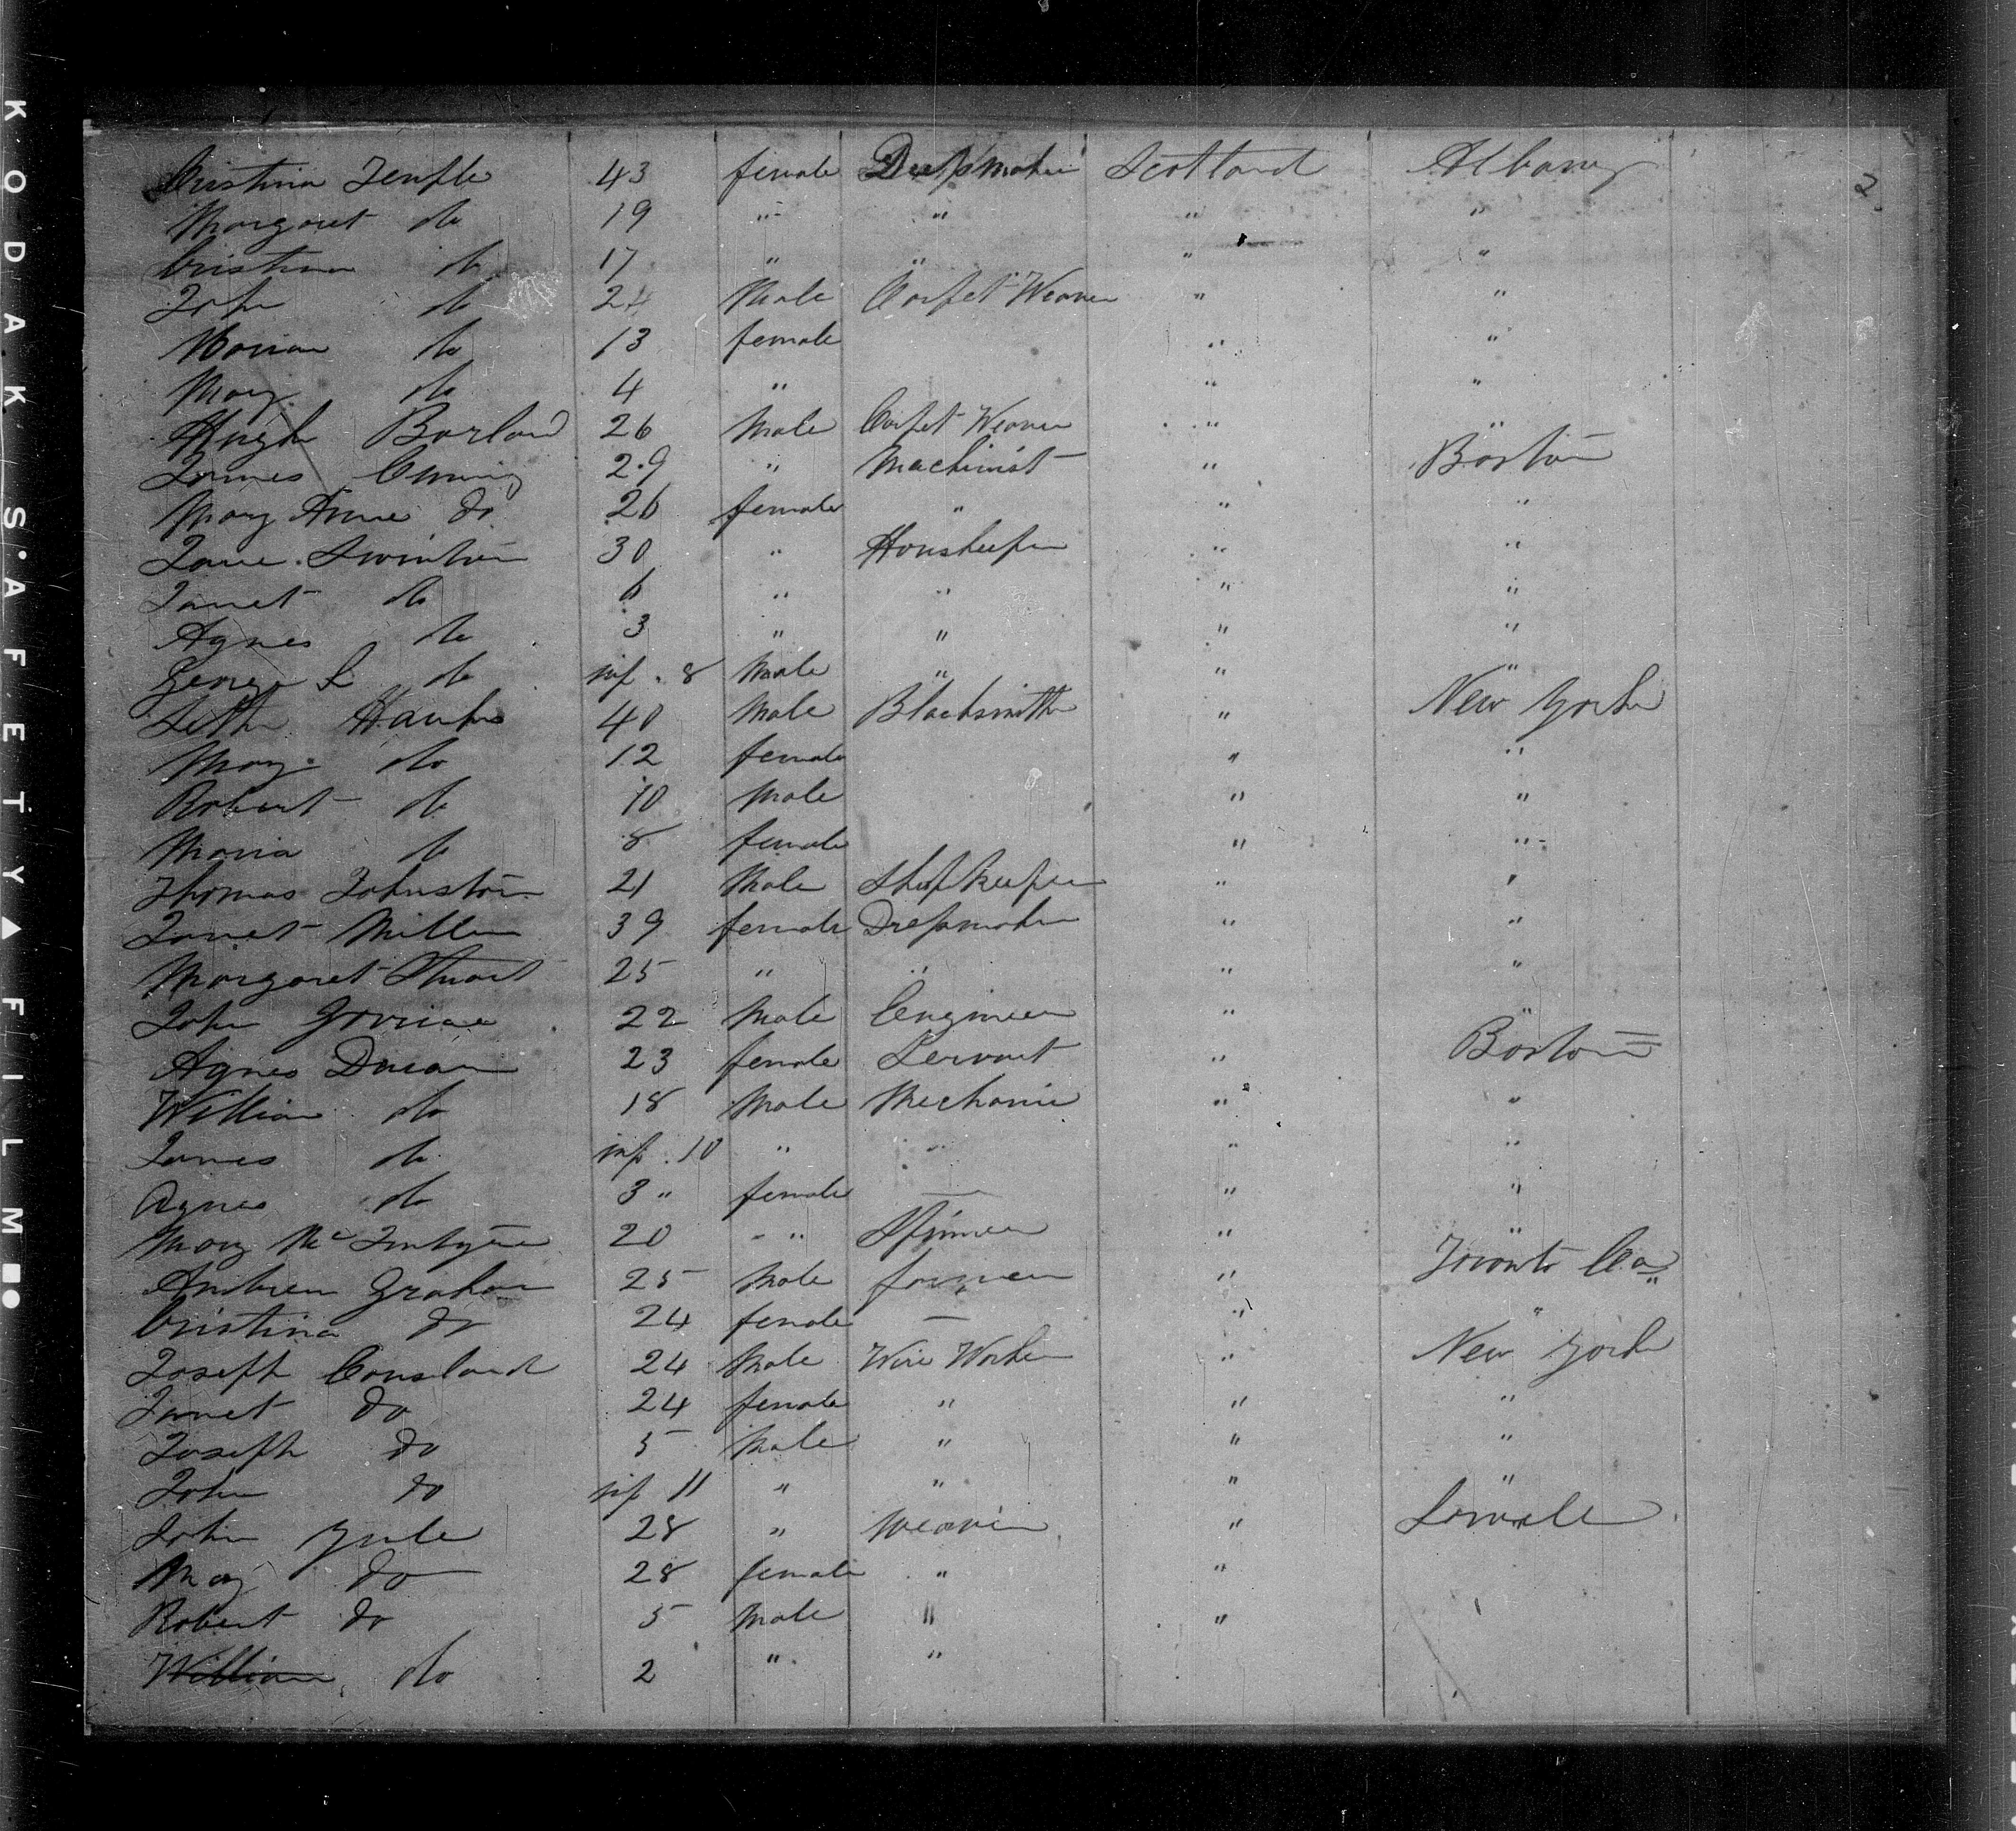 2
Cristina Temple 43 female Dressmaker Scotland Albany
Margaret do 19 " " " "
Cristina do 17 " " " "
John do 24 Male Carpet Weaver " "
Marian do 13 female " "
Mary do 4 " " "
Hugh Borland 26 Male Carpet Weaver " "
James Cuming 29 " Machinist " Boston
Mary Anne do 26 female " " "
Jane Swinton 30 " Houskeeper " "
Janet do 6 " " " "
Agnes do 3 " " " "
George S do inf. 8 Male " " "
Seth Hawks 40 Male Blacksmith " New York
Mary do 12 female " "
Robert do 10 Male " "
Maria do 8 female " "
Thomas Johnston 21 Male Shopkeeper " "
Janet Miller 39 female Dressmaker " "
Margaret Stuart 25 " " " "
John 22 Male Engineer " "
Agnes 23 female Servant " Boston
William do 18 Male Mechanic " "
James do inf. 10 " " " "
Agnes do 3 " female — " "
Mary McIntyre 20 " Spinner " "
Andrew Graham 25 Male farmer " Toronto Ca
Cristina do 24 female — " "
Joseph Cousland 24 Male Wire Worker " New York
Janet do 24 female " " "
Joseph do 5 Male " " "
John do inf 11 " " " "
John Yule 28 " Weaver " Lowell
Mary do 28 female " "
Robert do 5 Male " "
William do 2 " "
KODAK S·A F E T Y ▲ F I L M